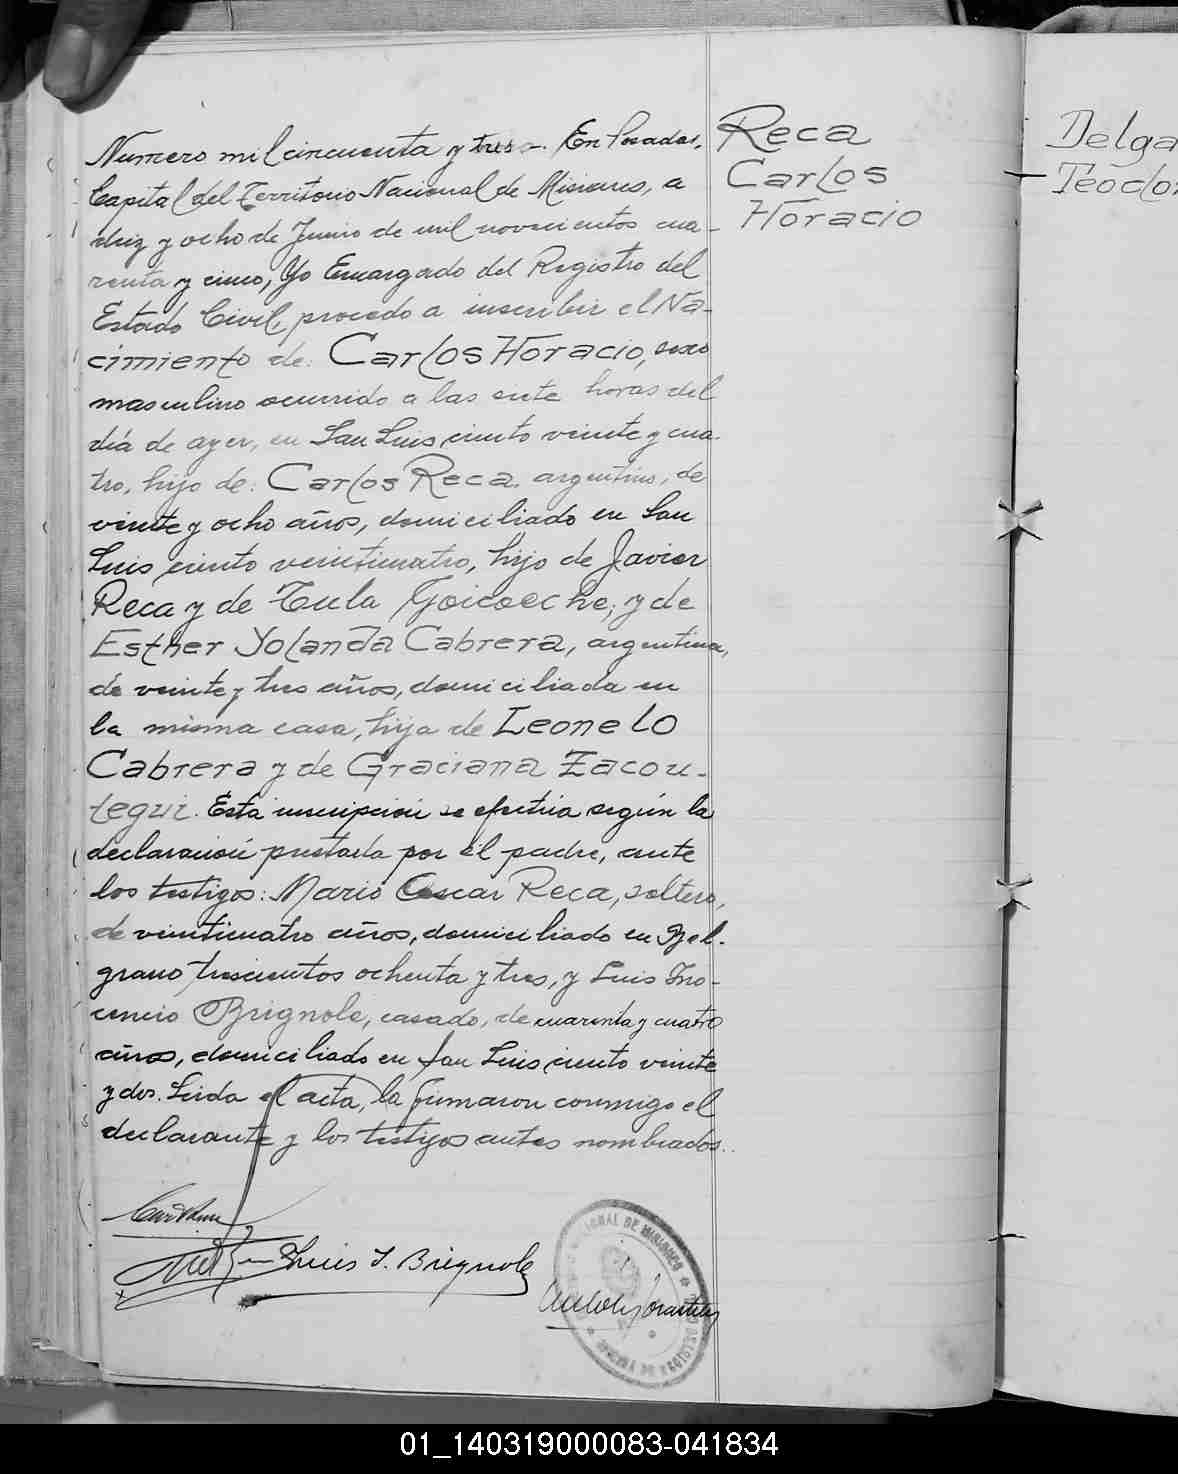 Numero mil cincuenta y tres -. En Posadas,
Capital del Territorio Nacional de Misiones, a
diez y ocho de Junio de mil novecientos cua-
renta y cinco, Yo Encargado del Registro del
Estado Civil, procedo a inscribir el Na-
cimiento de: Carlos Horacio, sexo
masculino ocurrido a las siete horas del
día de ayer, en San Luis ciento veinte y cua-
tro, hijo de: Carlos Reca, argentino, de
veinte y ocho años, domiciliado en San
Luis ciento veinticuatro, hijo de Javier
Reca y de Tula Goicoeche; y de
Esther Yolanda Cabrera, argentina,
de veinte y tres años, domiciliada en
la misma casa, hija de Leonelo
Cabrera y de Graciana Zacou-
tegui. Esta inscripción se efectúa según la
declaración prestada por el padre, ante
los testigos: Mario Oscar Reca, soltero,
de veinticuatro años, domiciliado en Bel-
grano trescientos ochenta y tres, y Luis Ino-
cencio Brignole, casado, de cuarenta y cuatro
años, domiciliado en San Luis ciento veinte
y dos. Leida el acta, la firmaron conmigo el
declarante y los testigos antes nombrados.
Luis I. Brignole
Reca
Carlos
Horacio
Delga
Teodor
01_140319000083-041834